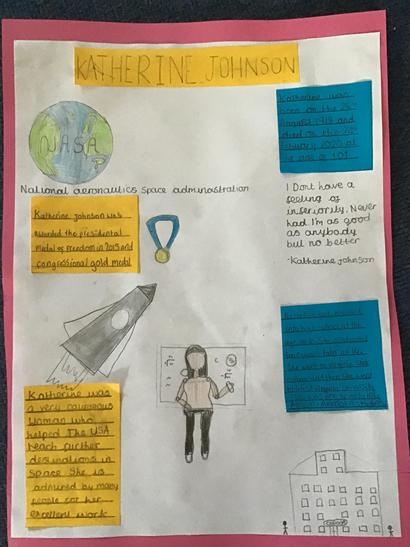 KATHERINE JOHNSON
NASA
National aeronautics space administration
Katherine was
born on the 26th
August 1918 and
died on the 24th
February 2020 at
the age of 101
I Dont have a
feeling of
inferiority. Never
had I'm as good
as anybody
but no better
-Katherine Johnson
Katherine Johnson was
awarded the presidental
medal of freedom in 2015 and
congressional gold medal
Katherine was
a very courageous
woman who
helped The USA
reach further
destinations in
space She is
admired by many
people for her
excellent work